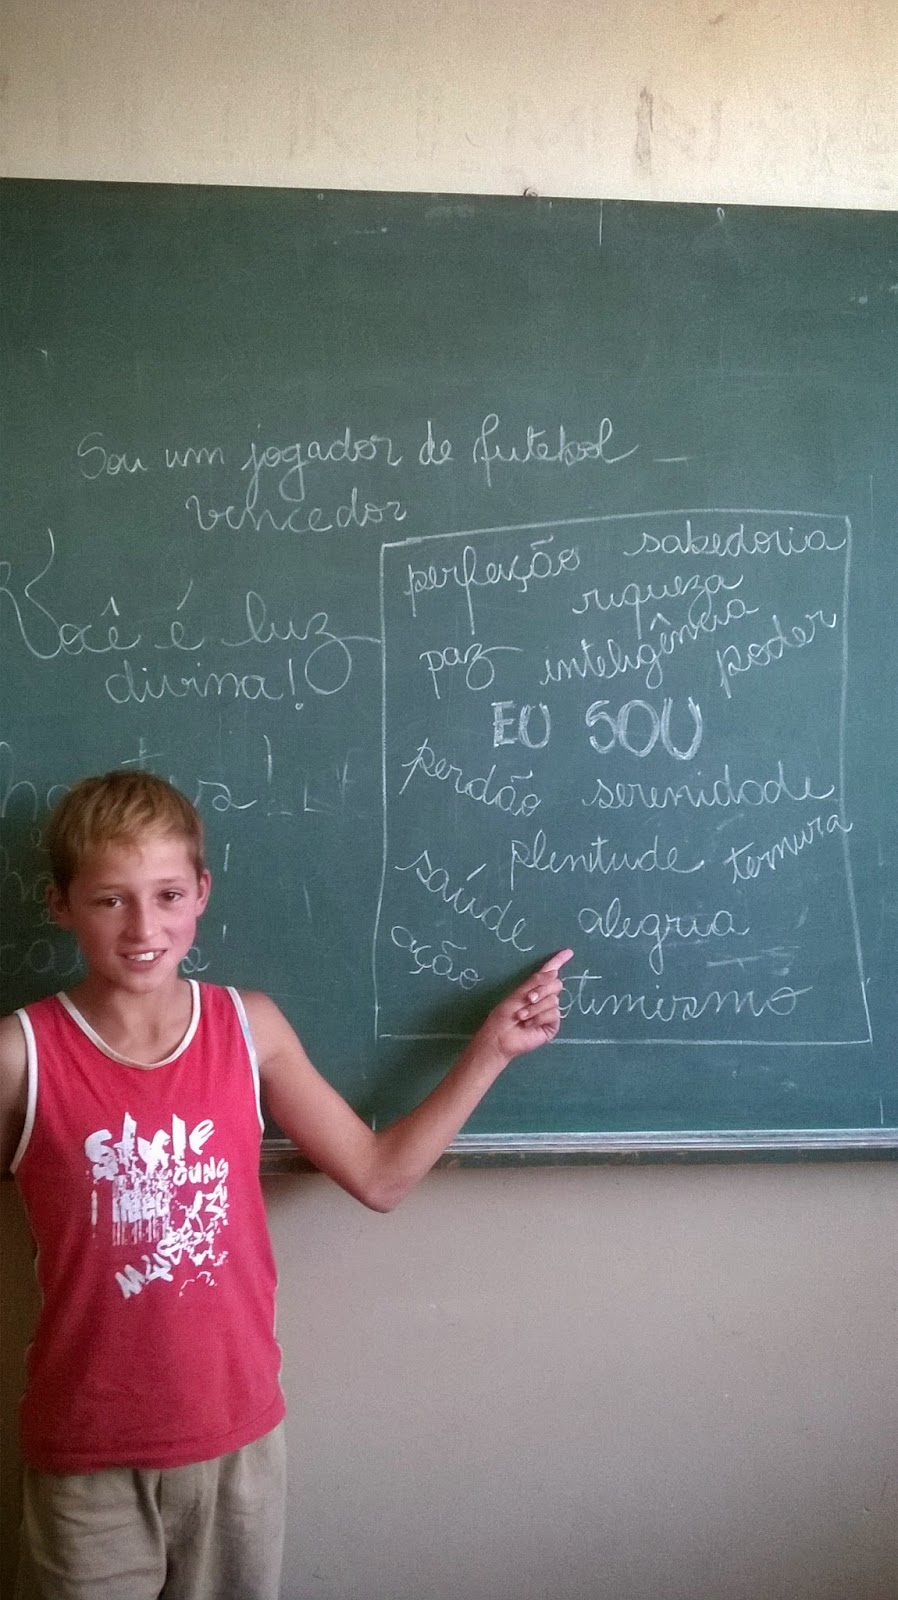 Sou um jogador de futebol
vencedor
Você é luz
divina!
perfeição sabedoria
riqueza
paz inteligência poder
EU SOU
perdão serenidade
plenitude ternura
saúde alegria
ação otimismo
Style
YOUNG